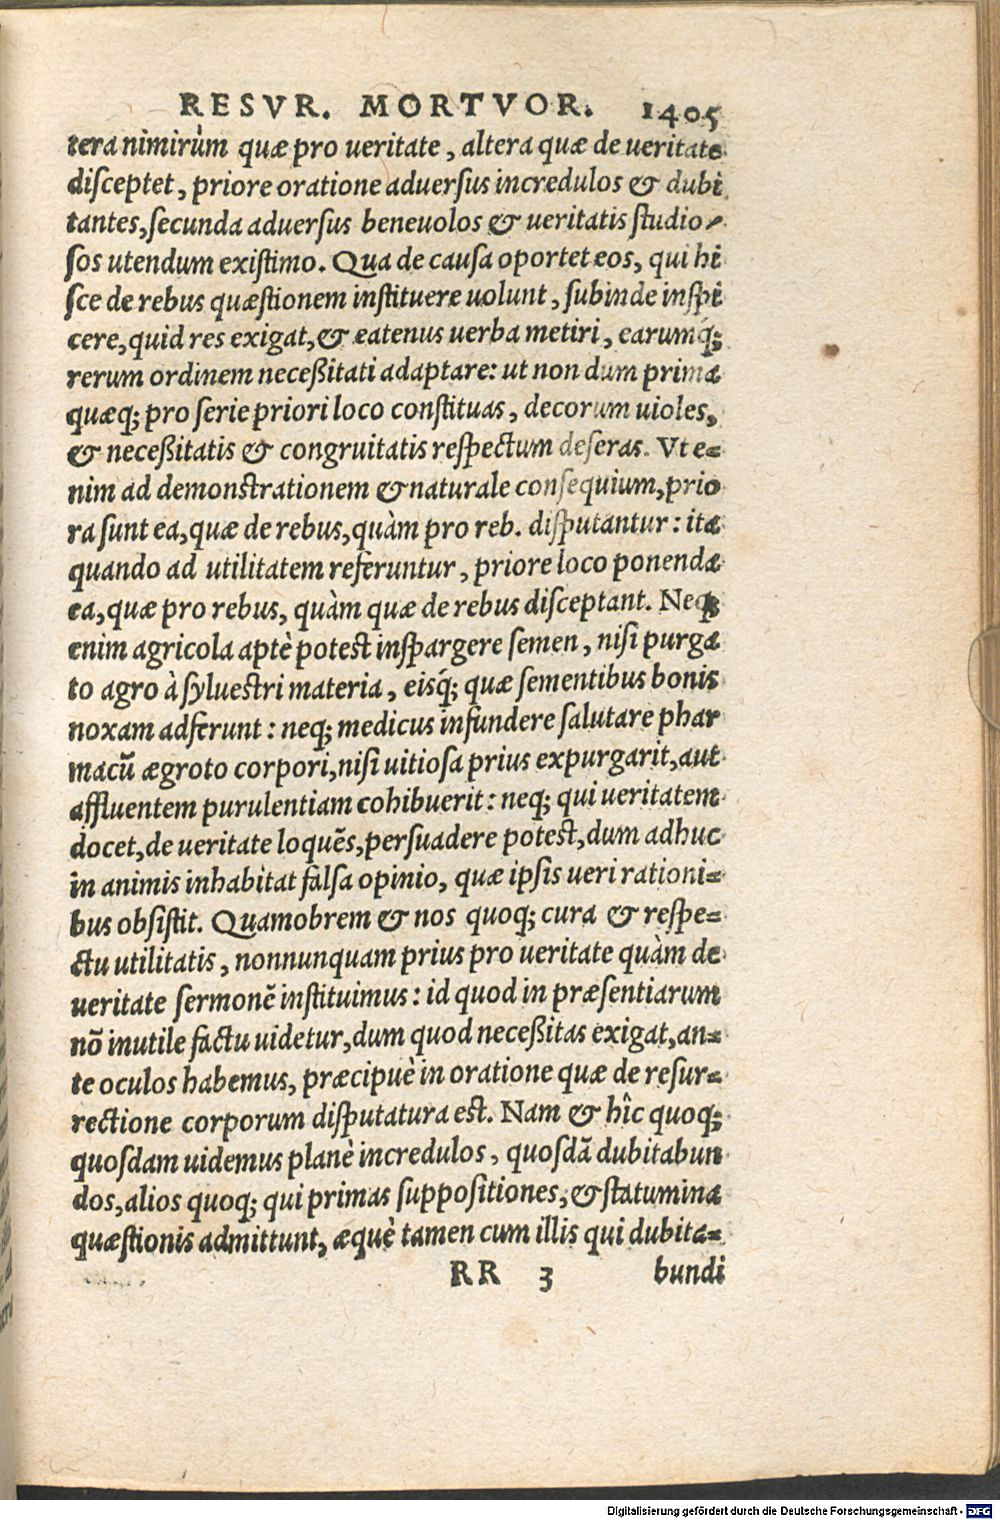 RESVR. MORTVOR. 1405
tera nimirùm quæ pro ueritate, altera quæ de ueritate
disceptet, priore oratione aduersus incredulos & dubi
tantes, secunda aduersus beneuolos & ueritatis studio-
sos utendum existimo. Qua de causa oportet eos, qui hi
sce de rebus quæstionem instituere uolunt, subinde inspi
cere, quid res exigat, & eatenus uerba metiri, earumq́;
rerum ordinem neceßitati adaptare: ut non dum prima
quæq; pro serie priori loco constituas, decorum uioles,
& neceßitatis & congruitatis respectum deseras. Vt e-
nim ad demonstrationem & naturale consequium, prio
ra sunt ea, quæ de rebus, quàm pro reb. disputantur: ita
quando ad utilitatem referuntur, priore loco ponenda
ea, quæ pro rebus, quàm quæ de rebus disceptant. Neq;
enim agricola aptè potest inspargere semen, nisi purga
to agro à syluestri materia, eisq́; quæ sementibus bonis
noxam adferunt: neq; medicus infundere salutare phar
macũ ægroto corpori, nisi uitiosa prius expurgarit, aut
affluentem purulentiam cohibuerit: neq; qui ueritatem
docet, de ueritate loquẽs, persuadere potest, dum adhuc
in animis inhabitat falsa opinio, quæ ipsis ueri rationi-
bus obsistit. Quamobrem & nos quoq; cura & respe-
ctu utilitatis, nonnunquam prius pro ueritate quàm de
ueritate sermonẽ instituimus: id quod in præsentiarum
nõ inutile factu uidetur, dum quod neceßitas exigat, an-
te oculos habemus, præcipuè in oratione quæ de resur-
rectione corporum disputatura est. Nam & hîc quoq;
quosdam uidemus planè incredulos, quosdã dubitabun
dos, alios quoq; qui primas suppositiones, & statumina
quæstionis admittunt, æquè tamen cum illis qui dubita-
RR 3 bundi
Digitalisierung gefördert durch die Deutsche Forschungsgemeinschaft - DFG